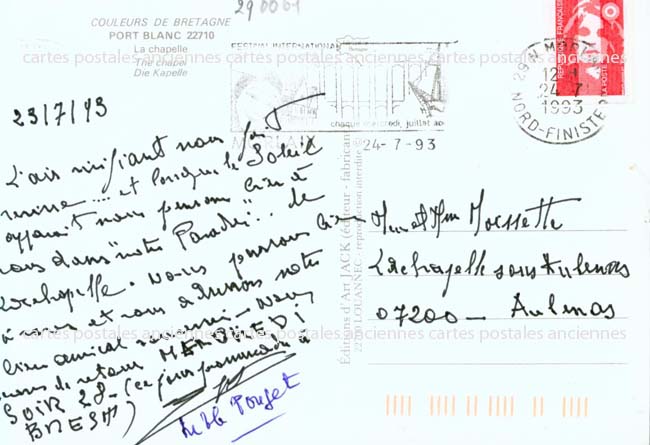 290001
COULEURS DE BRETAGNE
PORT BLANC 22710
La chapelle
The chapel
Die Kapelle
FESTIVAL INTERNATIONAL
chaque mercredi, juillet août
MORLAIX
24-7-93
29 N MORLAIX
12 H
24-7
1993
NORD-FINISTERE
cartes postales anciennes cartes postales anciennes cartes postales anciennes
23/7/93
L'air vivifiant nous
et lorsque le Soleil
apparaît nous pensons bien à
vous dans "notre Paradis".. de
Lachapelle. Nous pensons bien
à vous et vous adressons notre
bien amical souvenir - Nous
de retour MERCREDI
SOIR 28 - (ce jour promenade à
BREST)
Mr et Mme Mossette
Lachapelle sous Aubenas
07200 - Aubenas
Editions d'Art JACK (éditeur - fabricant)
22700 LOUANNEC - reproduction interdite
cartes postales anciennes cartes postales anciennes cartes postales anciennes
Pouget